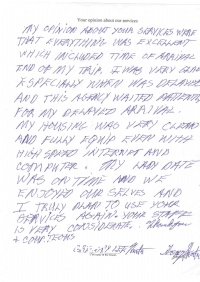 Your opinion about our services
MY OPINION ABOUT YOUR SERVICES WERE
THAT EVERYTHING WAS EXCELLENT
WHICH INCLUDED TIME OF ARRIVAL
END OF MY TRIP. I WAS VERY
ESPECIALLY WHICH WAS DELAYED
AND THIS AGENCY WAITED PATIENTLY
FOR MY DELAYED ARRIVAL.
MY HOUSING WAS VERY CLEAN
AND FULLY EQUIP EVEN WITH
HIGH SPEED INTERNET AND
COMPUTER. MY LADY DATE
WAS ON TIME AND WE
ENJOYED OURSELVES AND
I TRULY PLAN TO USE YOUR
SERVICES AGAIN. YOUR STAFF
IS VERY CONSIDERATE.